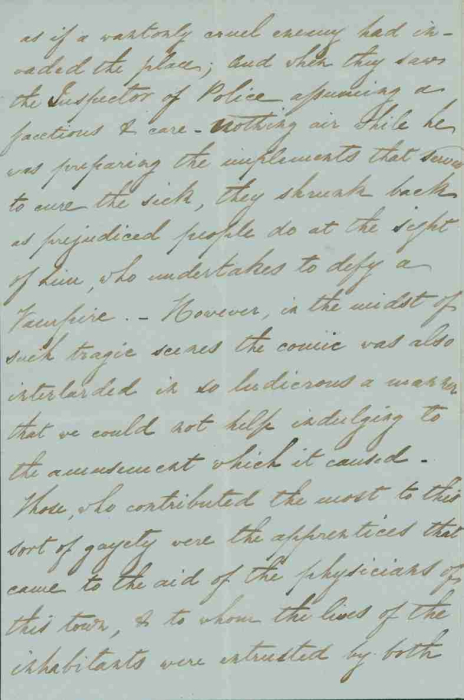 as if a wantonly cruel enemy had in-
vaded the place; and when they saw
the Inspector of Police assuming a
facetious & care-nothing air while he
was preparing the implements that served
to cure the sick, they shrunk back
as prejudiced people do at the sight
of him, who undertakes to defy a
Vampire. - However, in the midst of
such tragic scenes the comic was also
interlarded in so ludicrous a manner
that we could not help indulging to
the amusement which it caused -
Those, who contributed the most to this
sort of gayety were the apprentices that
came to the aid of the physicians of
this town, & to whom the lives of the
inhabitants were intrusted by both